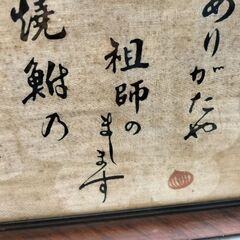 ありがたや
祖師の
まします
焼鮒の